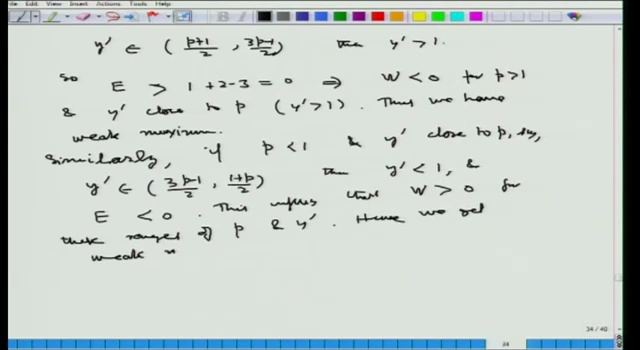 File Edit View Insert Actions Tools Help
y' ∈ ( p+1/2 , 3p-1/2 ) then y' > 1.
So E > 1 + 2 - 3 = 0 ⇒ W < 0 for p > 1
& y' close to p (y' > 1). Thus we have
weak maximum.
Similarly, if p < 1 & y' close to p, say,
y' ∈ ( 3p-1/2 , 1+p/2 ) then y' < 1, &
E < 0. This implies that W > 0 for
these ranges of p & y'. Hence we get
weak
34 / 40
34